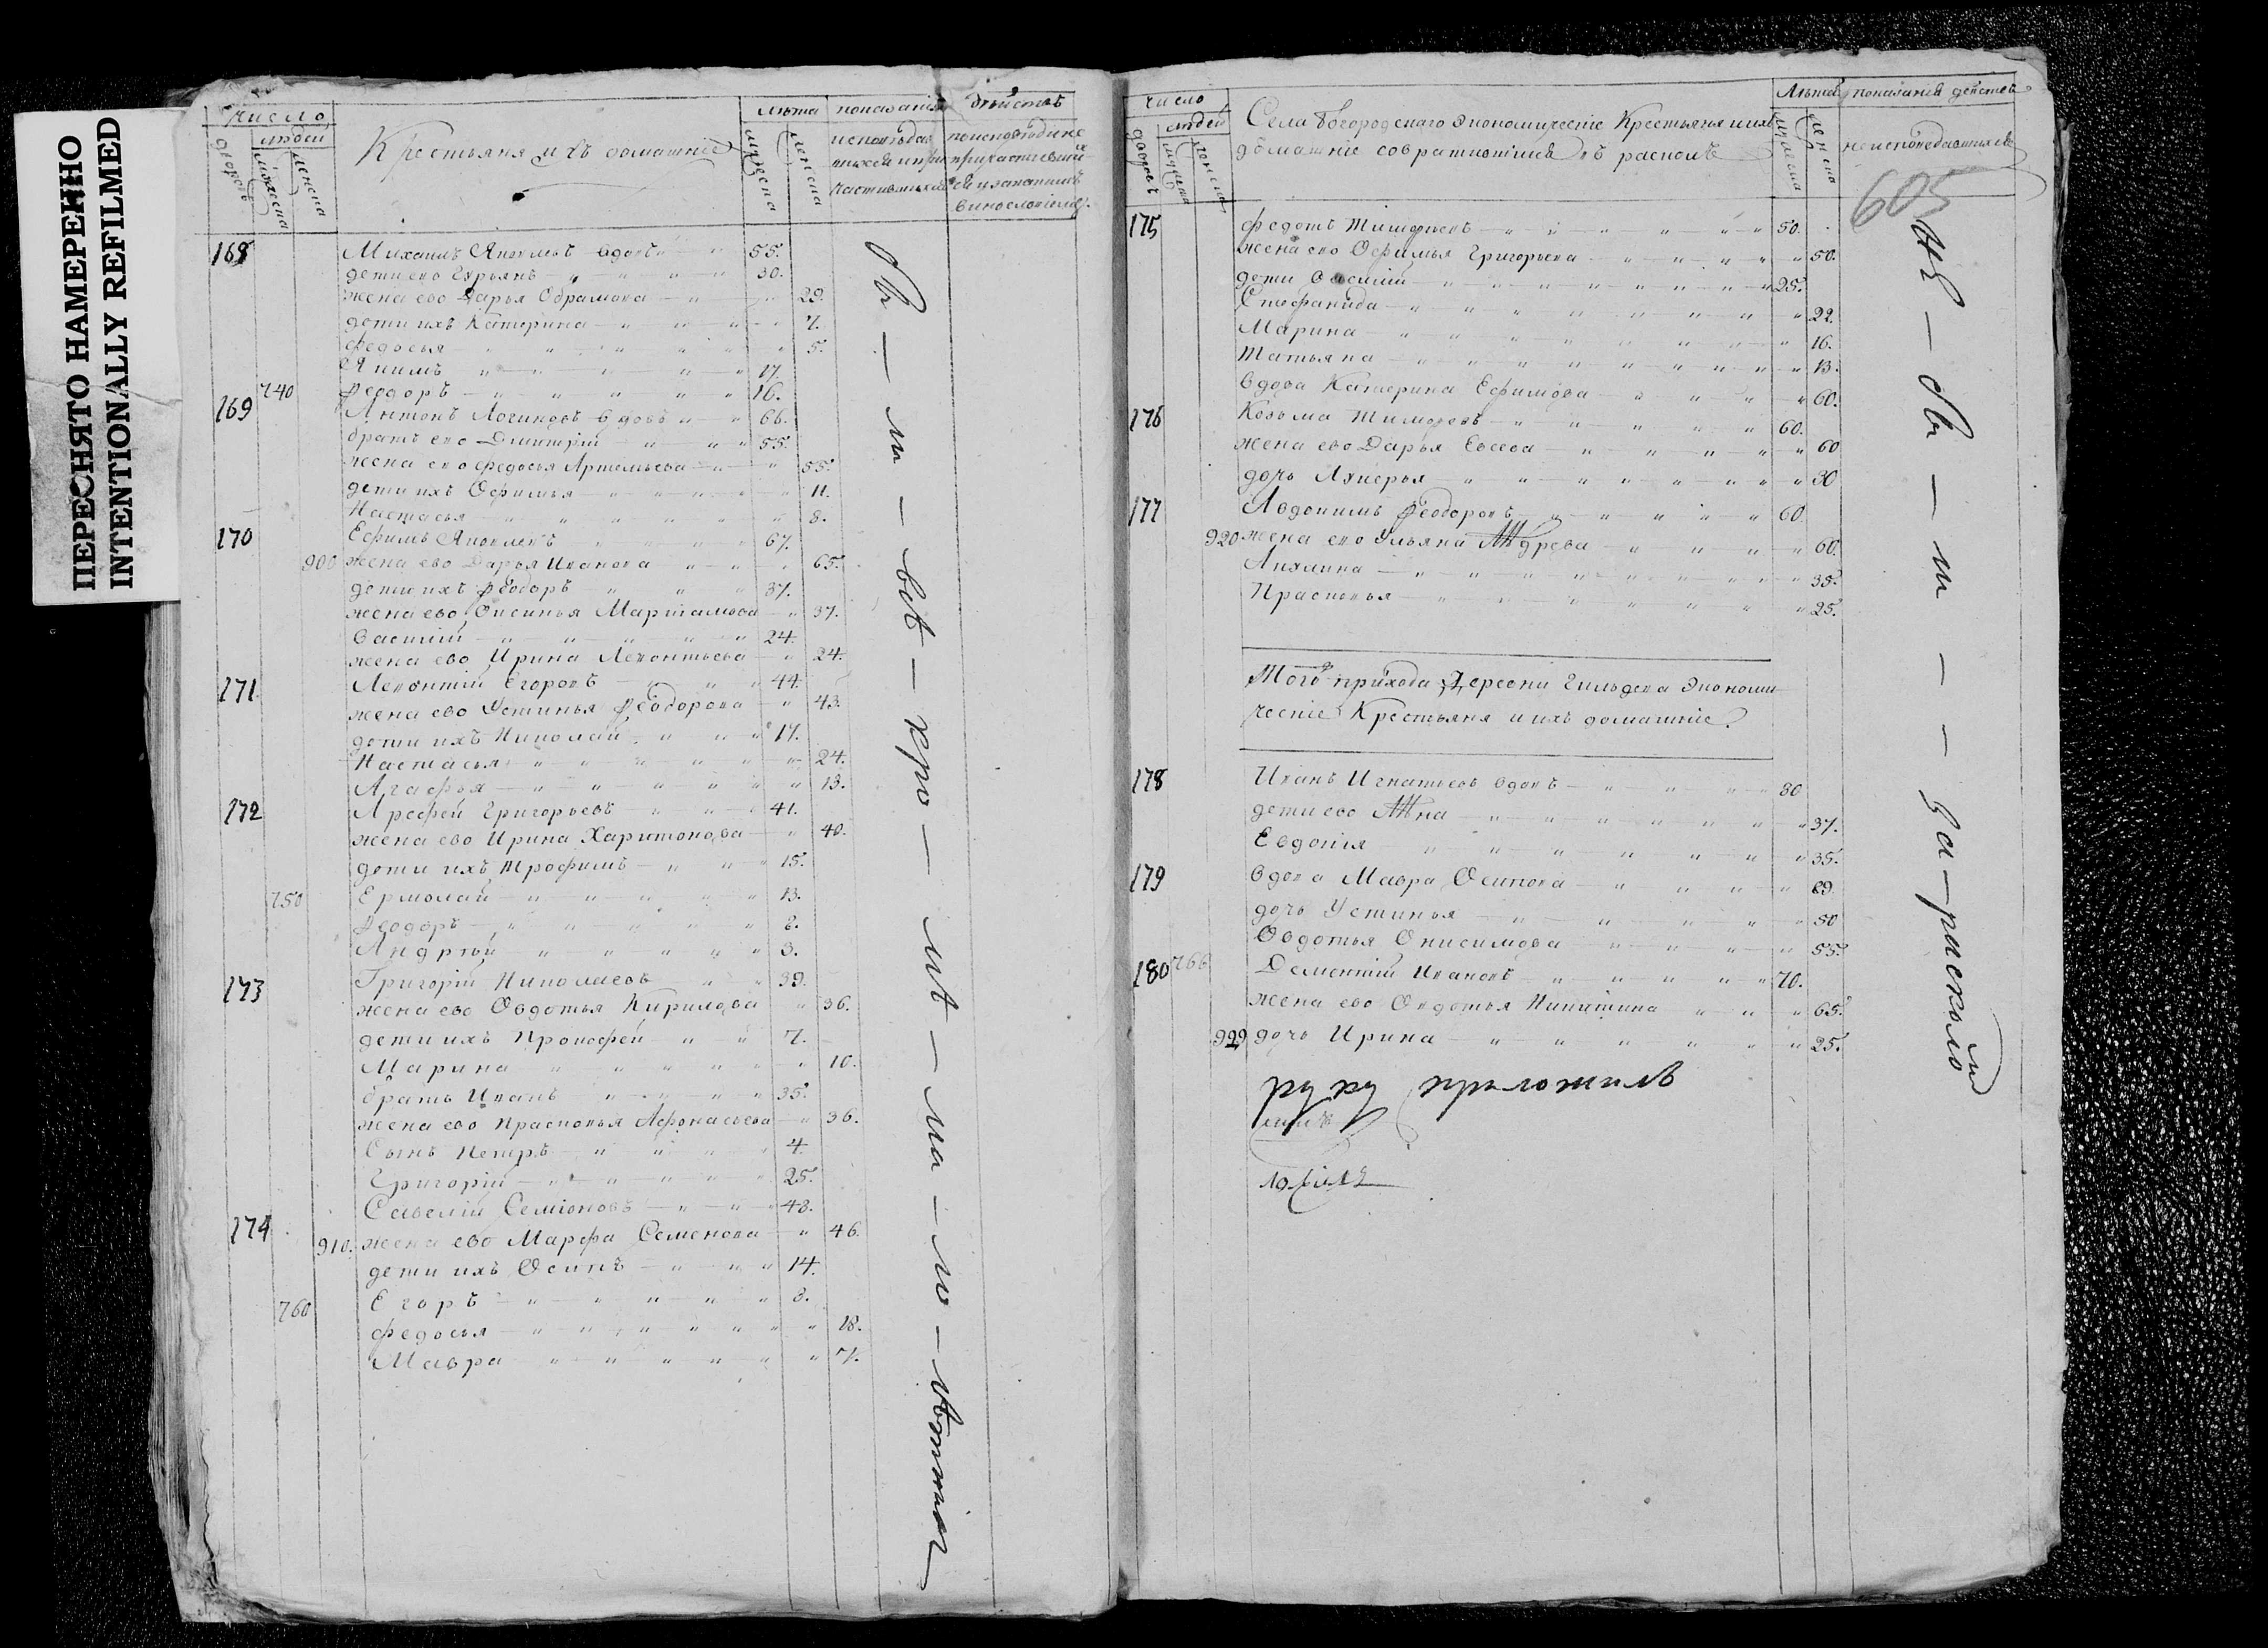 ПЕРЕСНЯТО НАМЕРЕННО
INTENTIONALLY REFILMED
Число
людей
дворовъ
мужеска
женска
Крестьяня ихъ домашніе
лѣта
мужеска
женска
показаніе
дѣйствъ
168 Михаилъ Яковлевъ вдовъ 55.
дети ево Гурьянъ 30.
жена ево Дарья Абрамова 29.
дети ихъ Катерина 7.
Федосья 5.
Якимъ 17.
740 Феодоръ 16.
169 Антонъ Логиновъ вдовъ 66.
братъ ево Дмитрій 55.
жена ево Федосья Артемьева 55.
дети ихъ Офимья 11.
Настасья 8.
170 Ефимъ Яковлевъ 67.
900 жена ево Дарья Иванова 65.
дети ихъ Феодоръ 37.
жена ево Оксинья 37.
Василій 24.
жена ево Ирина Леонтьева 24.
171 Леонтій Егоровъ 44.
жена ево Устинья Феодорова 43.
дети ихъ Николай 17.
Настасья 24.
Агафья 13.
172 Арефей Григорьевъ 41.
жена ево Ирина Харитонова 40.
дети ихъ Трофимъ 15.
750 Ермолай 13.
Феодоръ 8.
Андрѣй 3.
173 Григорій Николаевъ 39.
жена ево Овдотья Кирилова 36.
дети ихъ Прокофей 7.
Марина 10.
братъ Иванъ 35.
жена ево Прасковья Афонасьева 36.
Сынъ Петръ 4.
Григорій 25.
174 Савелій Семіоновъ 48.
910. жена ево Марфа Семенова 46.
дети ихъ Осипъ 14.
760 Егоръ 3.
Федосья 18.
Мавра 7.
Число
людей
дворовъ
мужеска
женска
Села Богородскаго Экономическіе Крестьяня и ихъ
домашніе совратившіися въ расколъ
Лѣта
мужеска
женска
показанія действъ
неисповедавшихся
605
175 Федотъ Тимофеевъ 50.
жена ево Офимья Григорьева 50.
дети Василій 25.
Стефанида 22.
Марина 16.
Татьяна 13.
вдова Катерина Ефимова 60.
176 Козьма Тимофеевъ 60.
жена ево Дарья Евсеева 60
дочь Лукерья 30
177 Авдокимъ Феодоровъ 60.
920 жена ево Ульяна Андреева 60.
Акилина 35.
Прасковья 25.
Того прихода Деревни Гильдева Экономи
ческіе Крестьяня и ихъ домашніе
178 Иванъ Игнатьевъ вдовъ 80
дети ево Анна 37.
Евдокия 35.
179 вдова Мавра Осипова 89.
дочь Устинья 50
Овдотья Онисимова 55.
180 766 Дементій Ивановъ 70.
жена ево Овдотья Никитина 65.
929 дочь Ирина 25.
руку приложилъ